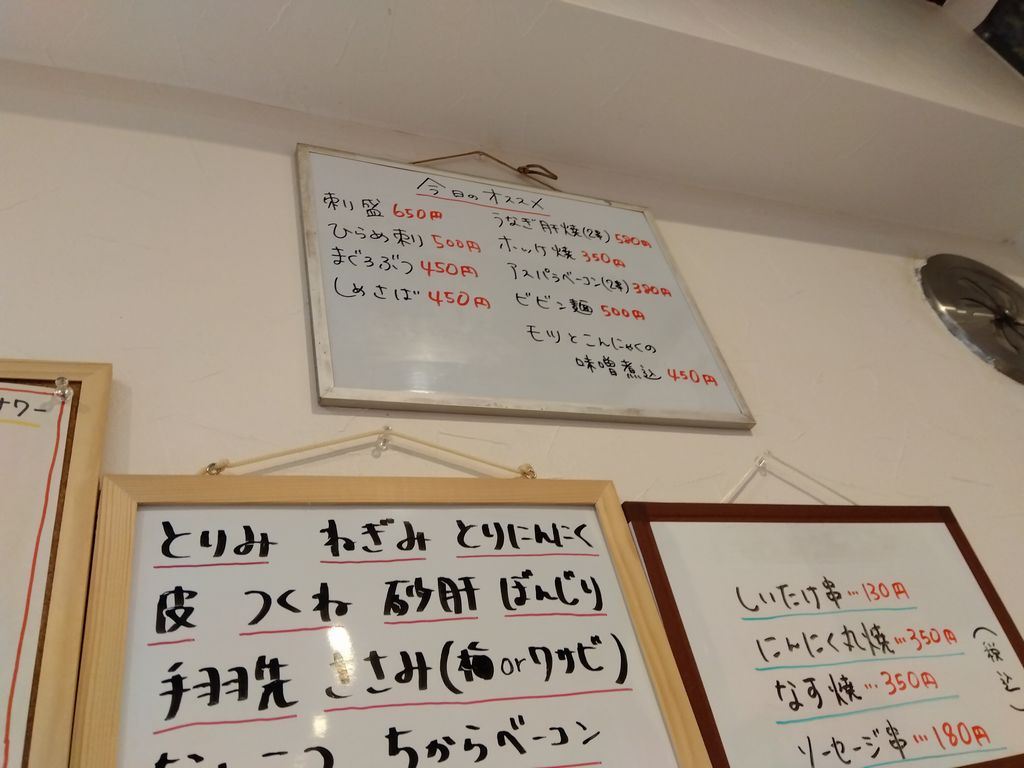 今日のオススメ
刺し盛 650円
ひらめ刺り 500円
まぐろぶつ 450円
しめさば 450円
うなぎ肝焼(2本) 580円
ホッケ焼 350円
アスパラベーコン(2本) 380円
ビビン麺 500円
モツとこんにゃくの
味噌煮込 450円
ワー
とりみ ねぎみ とりにんにく
皮 つくね 砂肝 ぼんじり
手羽先 ささみ(梅orワサビ)
ちからベーコン
しいたけ串…130円
にんにく丸焼…350円
なす焼…350円
ソーセージ串…180円
(税込)